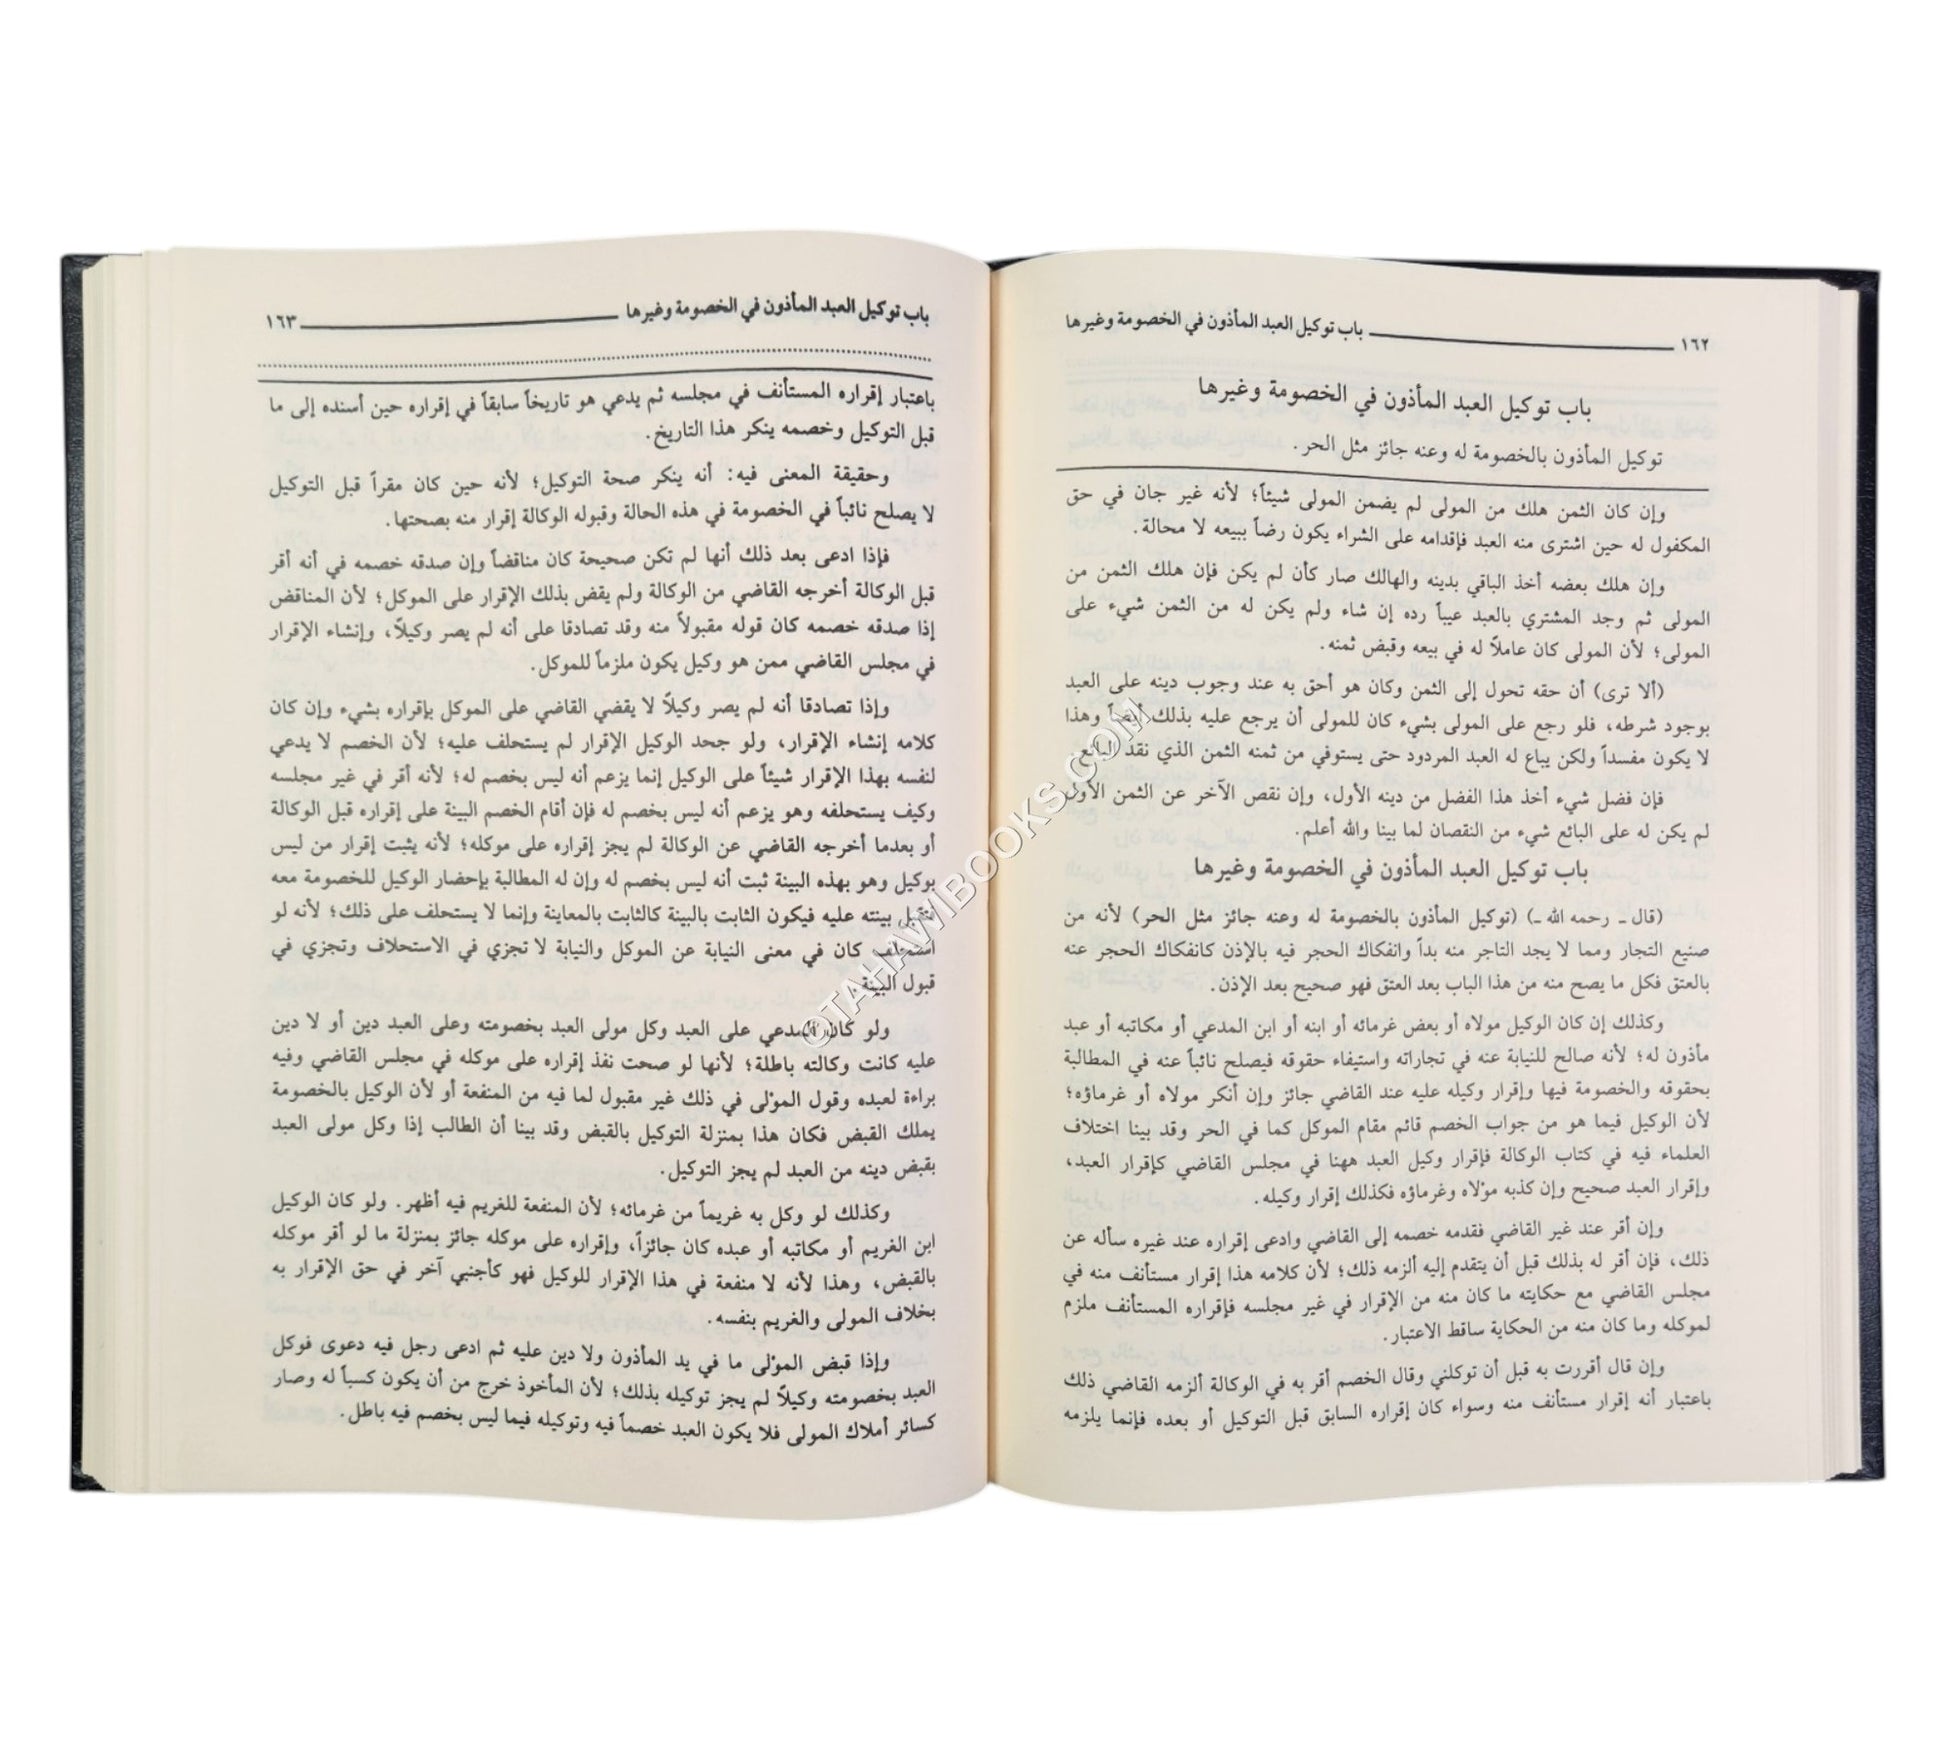 ١٦٢ باب توكيل العبد المأذون في الخصومة وغيرها
باب توكيل العبد المأذون في الخصومة وغيرها
توكيل المأذون بالخصومة له وعنه جائز مثل الحر.
وإن كان الثمن هلك من المولى لم يضمن المولى شيئاً؛ لأنه غير جان في حق
المكفول له حين اشترى منه العبد فإقدامه على الشراء يكون رضاً ببيعه لا محالة.
وإن هلك بعضه أخذ الباقي بدينه والهالك صار كأن لم يكن فإن هلك الثمن من
المولى ثم وجد المشتري بالعبد عيباً رده إن شاء ولم يكن له من الثمن شيء على
المولى؛ لأن المولى كان عاملاً له في بيعه وقبض ثمنه.
(ألا ترى) أن حقه تحول إلى الثمن وكان هو أحق به عند وجوب دينه على العبد
بوجود شرطه، فلو رجع على المولى بشيء كان للمولى أن يرجع عليه بذلك أيضاً وهذا
لا يكون مفسداً ولكن يباع له العبد المردود حتى يستوفي من ثمنه الثمن الذي نقد البائع
فإن فضل شيء أخذ هذا الفضل من دينه الأول، وإن نقص الآخر عن الثمن الأول
لم يكن له على البائع شيء من النقصان لما بينا والله أعلم.
باب توكيل العبد المأذون في الخصومة وغيرها
(قال ـ رحمه الله ـ) (توكيل المأذون بالخصومة له وعنه جائز مثل الحر) لأنه من
صنيع التجار ومما لا يجد التاجر منه بداً وانفكاك الحجر فيه بالإذن كانفكاك الحجر عنه
بالعتق فكل ما يصح منه من هذا الباب بعد العتق فهو صحيح بعد الإذن.
وكذلك إن كان الوكيل مولاه أو بعض غرمائه أو ابنه أو ابن المدعي أو مكاتبه أو عبد
مأذون له؛ لأنه صالح للنيابة عنه في تجاراته واستيفاء حقوقه فيصلح نائباً عنه في المطالبة
بحقوقه والخصومة فيها وإقرار وكيله عليه عند القاضي جائز وإن أنكر مولاه أو غرماؤه؛
لأن الوكيل فيما هو من جواب الخصم قائم مقام الموكل كما في الحر وقد بينا اختلاف
العلماء فيه في كتاب الوكالة فإقرار وكيل العبد ههنا في مجلس القاضي كإقرار العبد،
وإقرار العبد صحيح وإن كذبه مولاه وغرماؤه فكذلك إقرار وكيله.
وإن أقر عند غير القاضي فقدمه خصمه إلى القاضي وادعى إقراره عند غيره سأله عن
ذلك، فإن أقر له بذلك قبل أن يتقدم إليه ألزمه ذلك؛ لأن كلامه هذا إقرار مستأنف منه في
مجلس القاضي مع حكايته ما كان منه من الإقرار في غير مجلسه فإقراره المستأنف ملزم
لموكله وما كان منه من الحكاية ساقط الاعتبار.
وإن قال أقررت به قبل أن توكلني وقال الخصم أقر به في الوكالة ألزمه القاضي ذلك
باعتبار أنه إقرار مستأنف منه وسواء كان إقراره السابق قبل التوكيل أو بعده فإنما يلزمه
باب توكيل العبد المأذون في الخصومة وغيرها ١٦٣
باعتبار إقراره المستأنف في مجلسه ثم يدعي هو تاريخاً سابقاً في إقراره حين أسنده إلى ما
قبل التوكيل وخصمه ينكر هذا التاريخ.
وحقيقة المعنى فيه: أنه ينكر صحة التوكيل؛ لأنه حين كان مقراً قبل التوكيل
لا يصلح نائباً في الخصومة في هذه الحالة وقبوله الوكالة إقرار منه بصحتها.
فإذا ادعى بعد ذلك أنها لم تكن صحيحة كان مناقضاً وإن صدقه خصمه في أنه أقر
قبل الوكالة أخرجه القاضي من الوكالة ولم يقض بذلك الإقرار على الموكل؛ لأن المناقض
إذا صدقه خصمه كان قوله مقبولاً منه وقد تصادقا على أنه لم يصر وكيلاً، وإنشاء الإقرار
في مجلس القاضي ممن هو وكيل يكون ملزماً للموكل.
وإذا تصادقا أنه لم يصر وكيلاً لا يقضي القاضي على الموكل بإقراره بشيء وإن كان
كلامه إنشاء الإقرار، ولو جحد الوكيل الإقرار لم يستحلف عليه؛ لأن الخصم لا يدعي
لنفسه بهذا الإقرار شيئاً على الوكيل إنما يزعم أنه ليس بخصم له؛ لأنه أقر في غير مجلسه
وكيف يستحلفه وهو يزعم أنه ليس بخصم له فإن أقام الخصم البينة على إقراره قبل الوكالة
أو بعدما أخرجه القاضي عن الوكالة لم يجز إقراره على موكله؛ لأنه يثبت إقرار من ليس
بوكيل وهو بهذه البينة ثبت أنه ليس بخصم له وإن له المطالبة بإحضار الوكيل للخصومة معه
فتقبل بينته عليه فيكون الثابت بالبينة كالثابت بالمعاينة وإنما لا يستحلف على ذلك؛ لأنه لو
استحلف كان في معنى النيابة عن الموكل والنيابة لا تجزي في الاستحلاف وتجزي في
قبول البينة.
ولو كان المدعي على العبد وكل مولى العبد بخصومته وعلى العبد دين أو لا دين
عليه كانت وكالته باطلة؛ لأنها لو صحت نفذ إقراره على موكله في مجلس القاضي وفيه
براءة لعبده وقول المولى في ذلك غير مقبول لما فيه من المنفعة أو لأن الوكيل بالخصومة
يملك القبض فكان هذا بمنزلة التوكيل بالقبض وقد بينا أن الطالب إذا وكل مولى العبد
بقبض دينه من العبد لم يجز التوكيل.
وكذلك لو وكل به غريماً من غرمائه؛ لأن المنفعة للغريم فيه أظهر. ولو كان الوكيل
ابن الغريم أو مكاتبه أو عبده كان جائزاً، وإقراره على موكله جائز بمنزلة ما لو أقر موكله
بالقبض، وهذا لأنه لا منفعة في هذا الإقرار للوكيل فهو كأجنبي آخر في حق الإقرار به
بخلاف المولى والغريم بنفسه.
وإذا قبض المولى ما في يد المأذون ولا دين عليه ثم ادعى رجل فيه دعوى فوكل
العبد بخصومته وكيلاً لم يجز توكيله بذلك؛ لأن المأخوذ خرج من أن يكون كسباً له وصار
كسائر أملاك المولى فلا يكون العبد خصماً فيه وتوكيله فيما ليس بخصم فيه باطل.
©TAHAWIBOOKS.COM